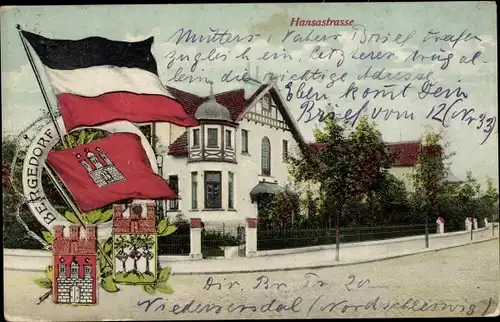 Hansastrasse
Mutters, Vaters Brief trafen
zugleich ein, letzterer trug al-
lein die richtige Adresse
Eben kommt Dein
Brief vom 12 (Nr 33)
BERGEDORF
Dir. Br. Fr 20
Niedersersdal (Nordschleswig)